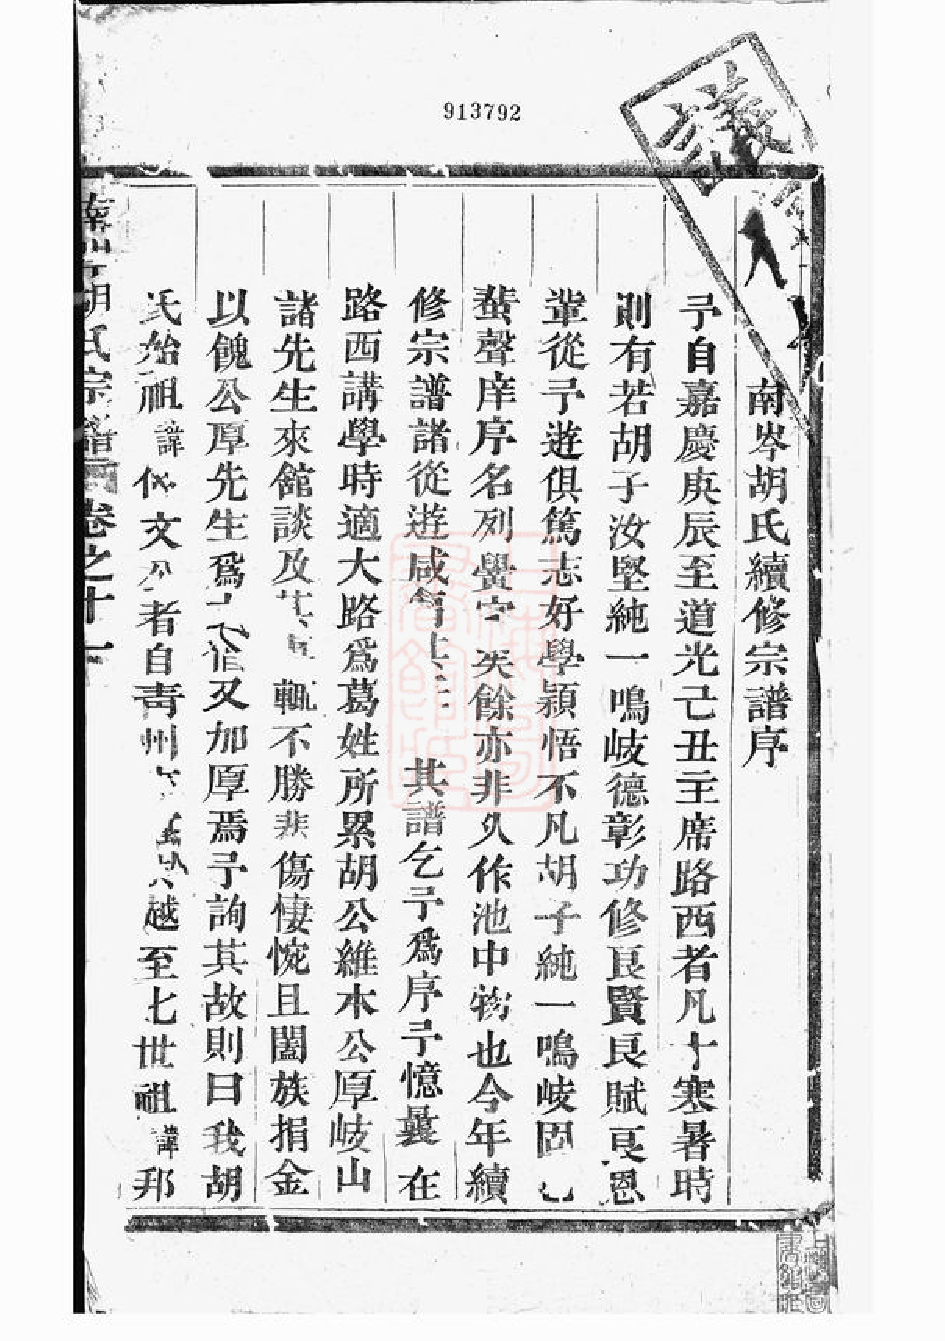 913792
議
南岑胡氏續修宗譜序
予自嘉慶庚辰至道光己丑主席路西者凡十寒暑時
則有若胡子汝堅純一鳴岐德彰功修良賢良賦良恩
輩從予遊俱篤志好學穎悟不凡胡子純一鳴岐固已
蜚聲庠序名列黌宮 餘亦非久作池中物也今年續
修宗譜諸從遊咸 其譜乞予為序予憶曩在
路西講學時適大路為葛姓所累胡公維木公原岐山
諸先生來館談及 輒不勝悲傷悽惋且闔族捐金
以餽公原先生為 又加厚焉予詢其故則曰我胡
氏始祖諱 文 者自青州 越至七世祖諱邦
胡氏宗譜 卷之十一